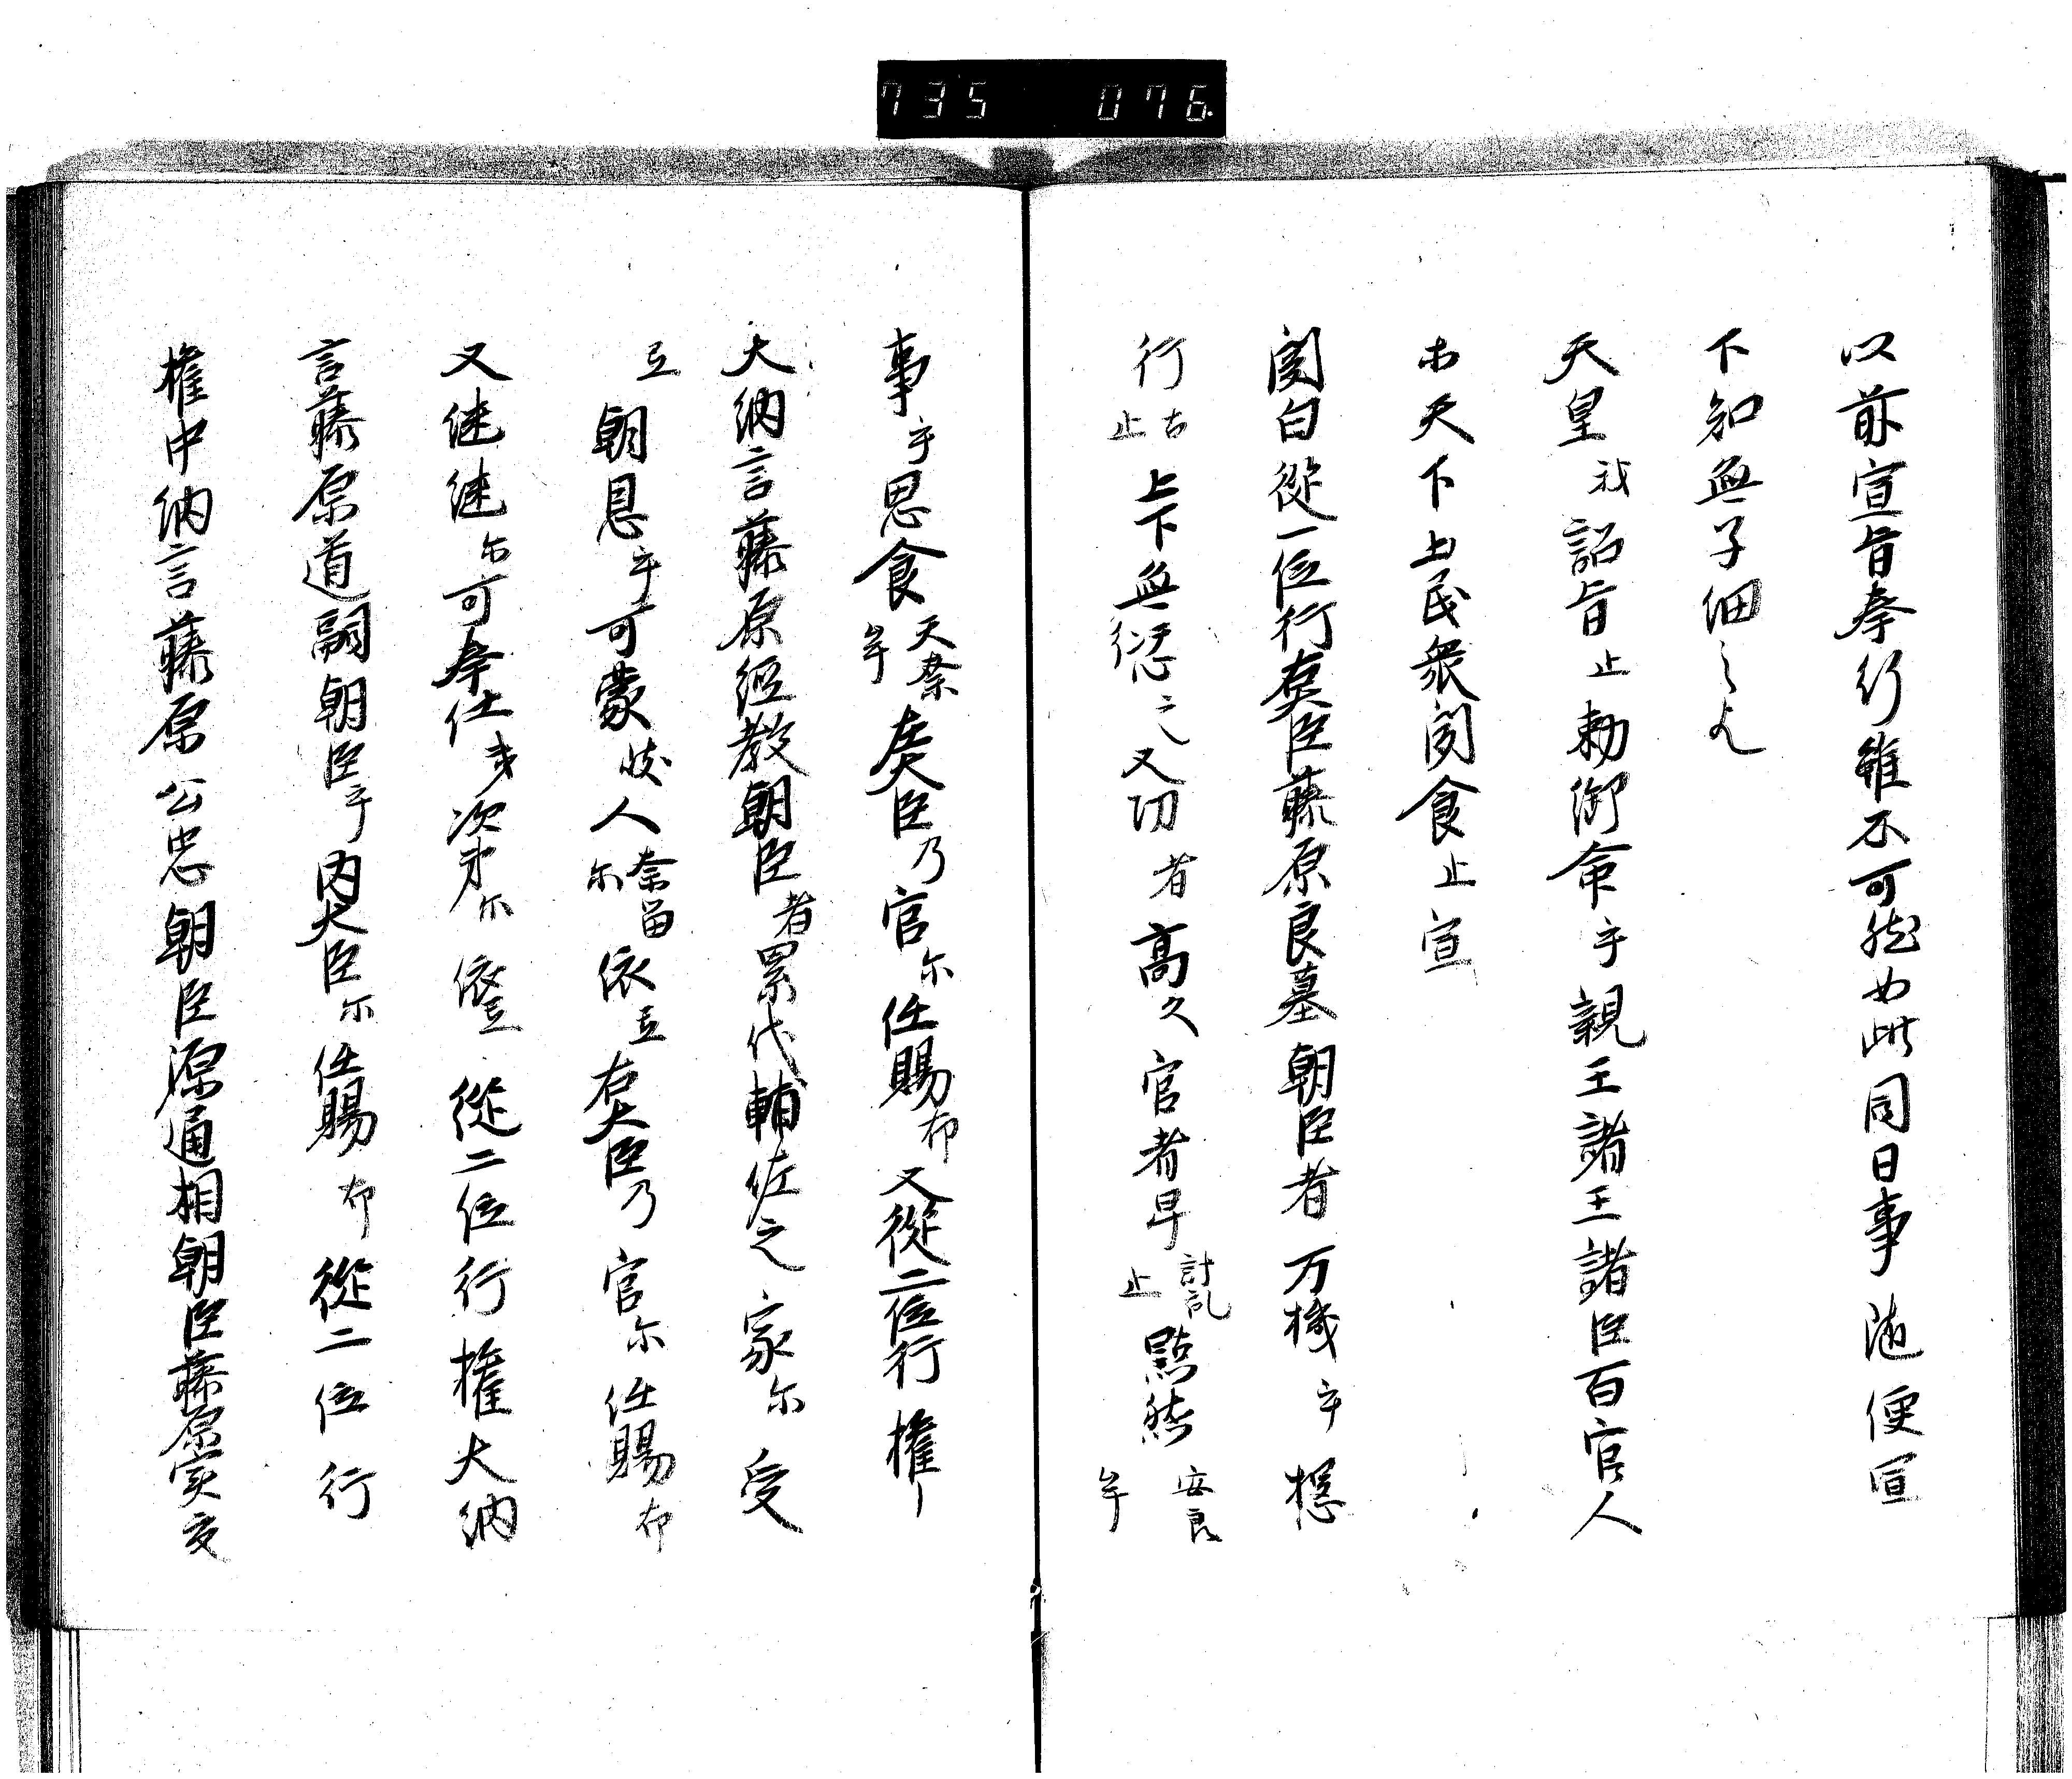 735 076
以前宣旨奉行雖不可然如此同日事随便宣
下知無子細之由
天皇我詔旨止勅御命乎親王諸王諸臣百官人
等天下上民衆聞食止宣
関白從一位行左大臣藤原良基朝臣者万機乎揔
行古止上下無愆之又功者高久官者早計礼止黙然安良牟
事乎思食天奈牟太政大臣乃官尓任賜布又從二位行權
大納言藤原経教朝臣者累代輔佐之家尓受
立朝恩乎可蒙岐人奈留尓依立右大臣乃官尓任賜布
又継継尓可奉仕支次第尓依立從二位行權大納
言藤原道嗣朝臣乎内大臣尓任賜布從二位行
權中納言藤原公忠朝臣源通相朝臣藤原実夏